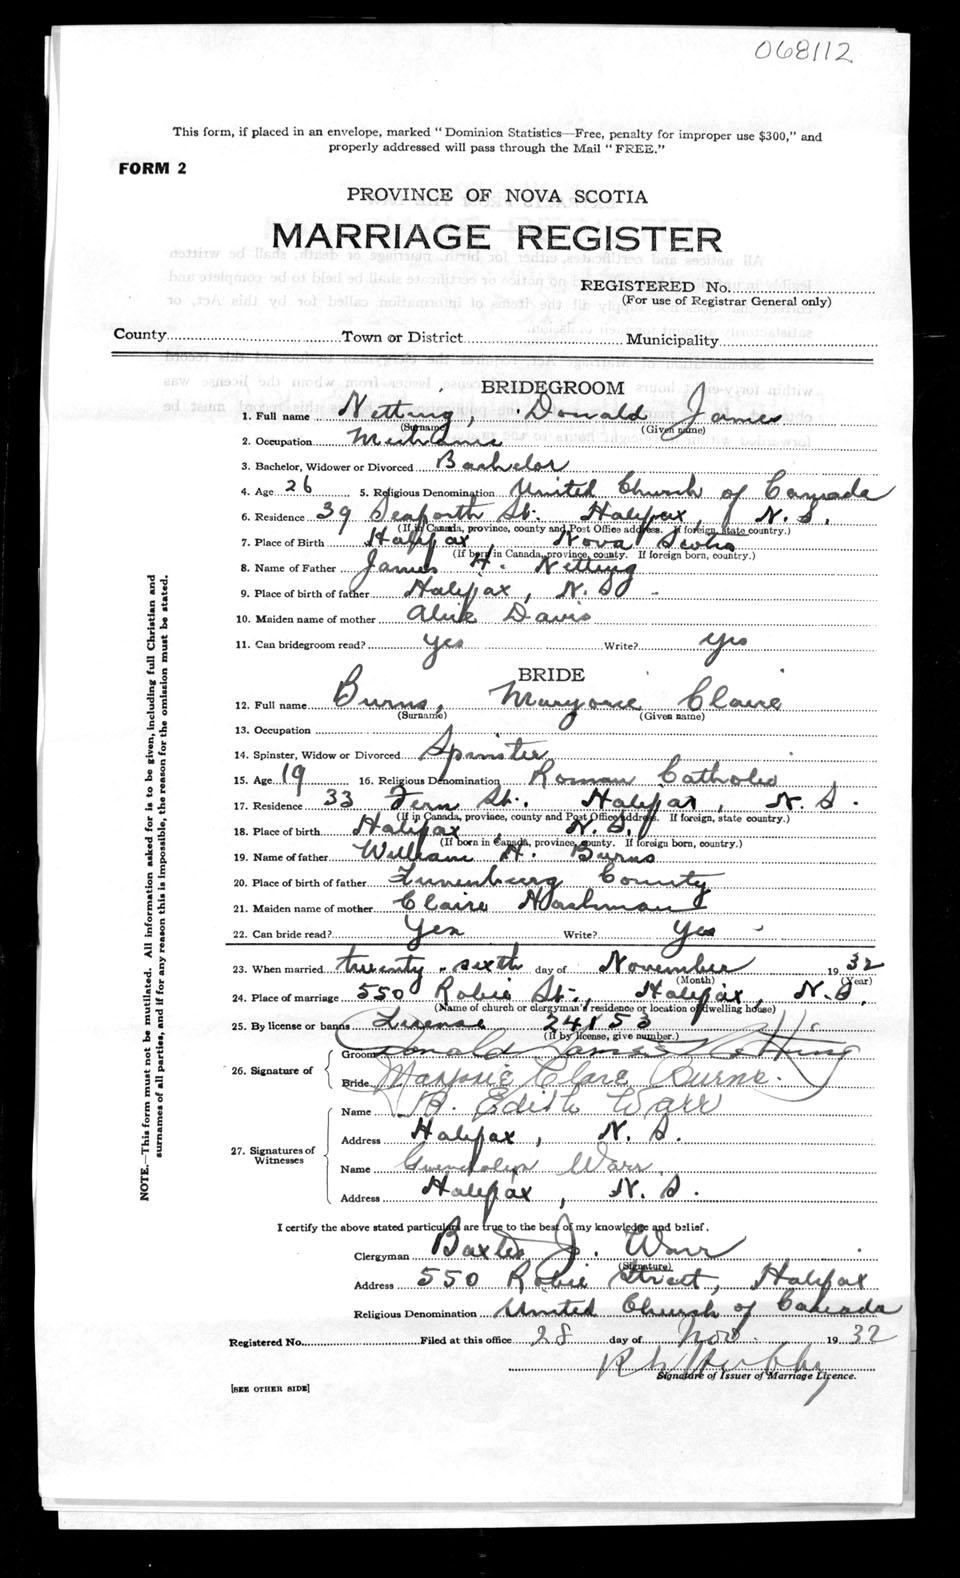 068112
This form, if placed in an envelope, marked "Dominion Statistics—Free, penalty for improper use $300," and
properly addressed will pass through the Mail "FREE."
FORM 2
PROVINCE OF NOVA SCOTIA
MARRIAGE REGISTER
REGISTERED No.
(For use of Registrar General only)
County Town or District Municipality
BRIDEGROOM
1. Full name Netting, Donald James
(Surname) (Given name)
2. Occupation Mechanic
3. Bachelor, Widower or Divorced Bachelor
4. Age 26 5. Religious Denomination United Church of Canada
6. Residence 39 Seaforth St., Halifax, N.S.
(If in Canada, province, county and Post Office address. If foreign, state country.)
7. Place of Birth Halifax, Nova Scotia
(If born in Canada, province, county. If foreign born, country.)
8. Name of Father James H. Netting
9. Place of birth of father Halifax, N.S.
10. Maiden name of mother Davis
11. Can bridegroom read? Yes Write? Yes
BRIDE
12. Full name Burns, Marjorie Claire
(Surname) (Given name)
13. Occupation
14. Spinster, Widow or Divorced Spinster
15. Age 19 16. Religious Denomination Roman Catholic
17. Residence 33 Fern St., Halifax, N.S.
(If in Canada, province, county and Post Office address. If foreign, state country.)
18. Place of birth Halifax, N.S.
(If born in Canada, province, county. If foreign born, country.)
19. Name of father William H. Burns
20. Place of birth of father Lunenburg County
21. Maiden name of mother Claire
22. Can bride read? Yes Write? Yes
23. When married twenty-sixth day of November 1932
(Month) (Year)
24. Place of marriage 550 Robie St., Halifax, N.S.
(Name of church or clergyman's residence or location of dwelling house)
25. By license or banns License 24153
(If by license, give number.)
26. Signature of
Groom Donald James Netting
Bride Marjorie Clare Burns.
27. Signatures of Witnesses
Name B. Edith Warr
Address Halifax, N.S.
Name Gwendolyn Warr
Address Halifax, N.S.
I certify the above stated particulars are true to the best of my knowledge and belief.
Clergyman Baxter J. Warr
(Signature)
Address 550 Robie Street, Halifax
Religious Denomination United Church of Canada
Registered No. Filed at this office 28 day of Nov. 1932
Signature of Issuer of Marriage Licence.
[SEE OTHER SIDE]
NOTE.—This form must not be mutilated. All information asked for is to be given, including full Christian and
surnames of all parties, and if for any reason this is impossible, the reason for the omission must be stated.